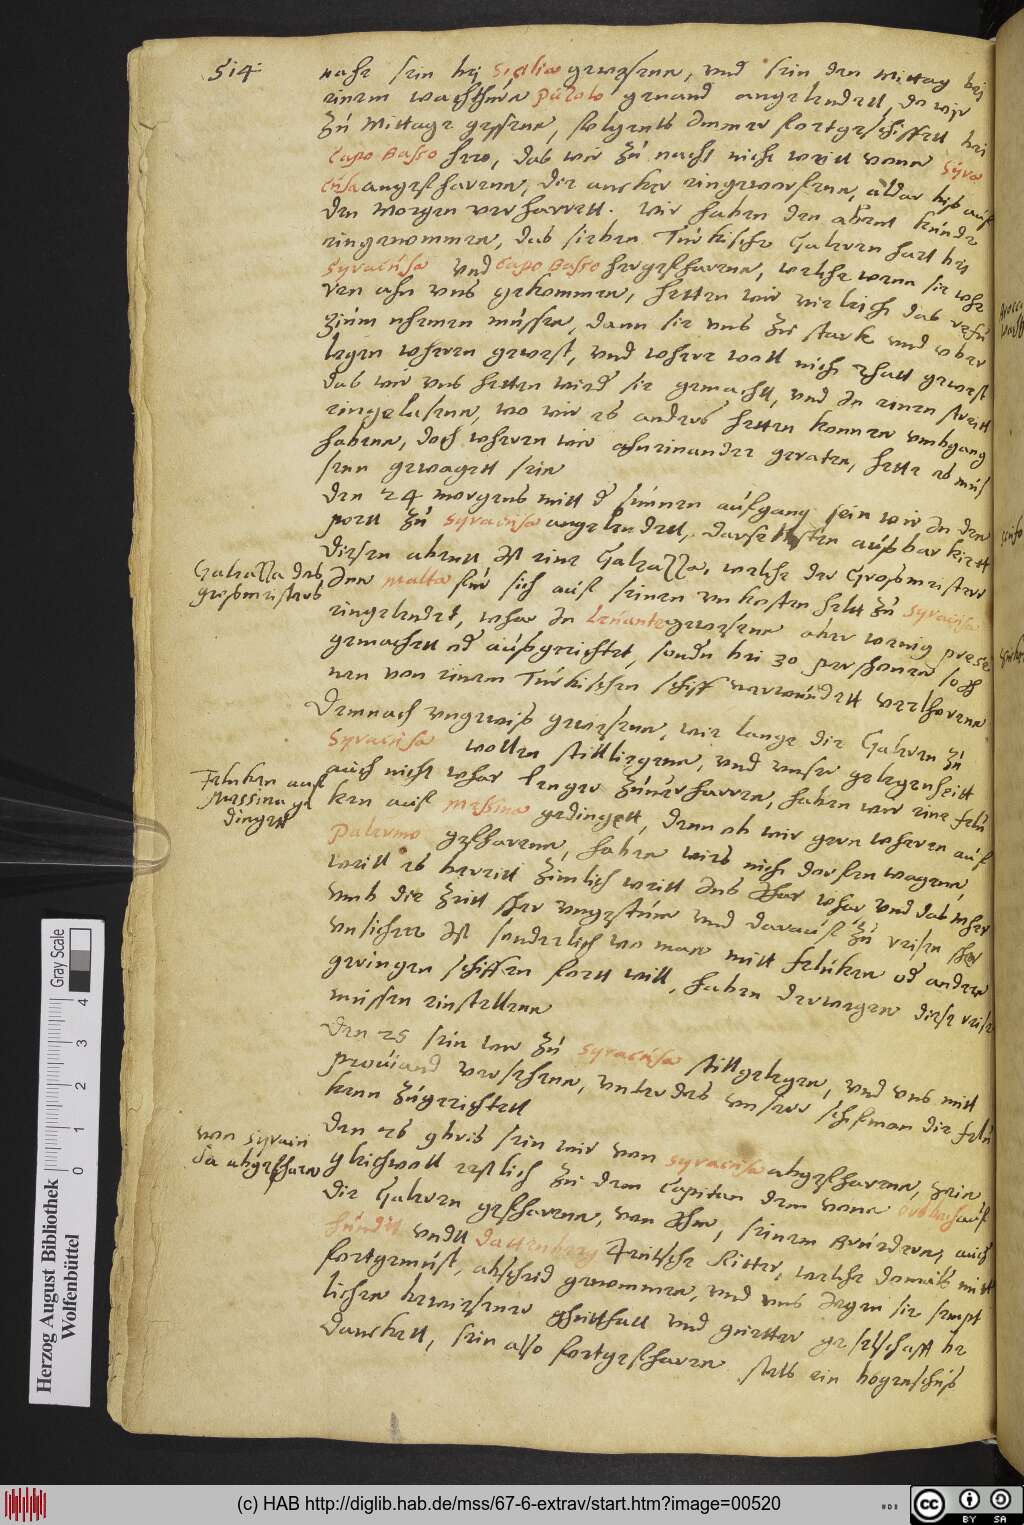 514.
nahe sein bej Sicilia gewesenn, und sein den Mittag bej
einem wachthurn Pazolo genand angelendett, do wir
zu Mittage gessenn, folgents dannen fortgeschiffett bei
Capo Basso hero, das wir zu nacht nicht weitt vonn Syra
cusa angefharenn, die ancker eingeworffenn, aldar biß auff
den Morgen verharrett. Wir haben den abent kunde
eingenommen, das sieben Türkische Galeren hart bey
Syracusa und Capo Basso hergefharenn, welche wenn sie whe
ren ahn uns gekommen, hetten wir vieleich das refu
zium nhemen müssen, dann sie uns zu stark und uber
legen wheren gewest, und where woll nich rhatt gewest
das wir uns hetten wied sie gemacht, und in einen streitt
eingelasenn, wo wir es anders hetten konnen umbgang
habenn, doch wheren wir ahneinander geraten, hette es müs
senn gewagett sein
Den 24 morgens mitt d sunnen aufgang sein wir in den
port zu Syracusa angelendett, auß barkiett
Diesen abentt ist eine Galeazza, welche der Großmeister
Galeazza des
Großmeisters
inn Malta für sich auff seinen unkosten helt zu Syracusa
eingelendet, whar in Leuante gewesenn aber wenig prese
gemachett od außgerichtet, sondn bei 30 personen so
nen von einem Türkischen schiff verwundett verlhorenn
Demnach ungewiß gewesenn, wie lange die Galeren zu
Syracusa wollen stillliegenn, und unser gelegenheitt
auch nicht whar lenger zuuerharren, haben wir eine felu
Feluken auff
Messina ge
dingett
ken auff Messina gedingett, denn ob wir gern wheren auff
Palermo gefharenn, haben wirs nich dorfen wagenn,
weill es bereitt zimlich weitt ins Jhar whar und das Mher
umb die Zeitt sher ungestüm und darauff zu reisen sher
unsicher ist sonderlich wo man mitt feluken od andern
geringen schiffen fortt will, haben derwegen diese reise
müssen einstellenn
Den 25 sein wir zu Syracusa stillgelegen, und uns mitt
prouiand versehenn, unterdes unser schifman die felu
kenn zugerichtett
Den 26 sein wir von Syracusa abgefharenn, sein
von Syracu
sa abgefharn
gleichwoll erstlich zu dem Capitan dem vonn auff
die Galeren gefharenn, von Ihm, seinem Bruderen, auch
undt Dattenberg Teutsche Ritter, welche damals mitt
fortgemüst, abscheid genommen, und uns gegen sie sempt
lichen bewiesener gutthatt und gutter geselschafft be
danckett, sein also fortgefharen stets ein bogenschuß
Herzog August Bibliothek
Wolfenbüttel
0 1 2 3 4
Gray Scale
(c) HAB http://diglib.hab.de/mss/67-6-extrav/start.htm?image=00520
cc BY SA